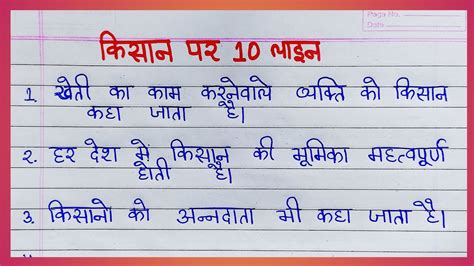 Page No.
Date
किसान पर 10 लाइन
1. खेती का काम करनेवाले व्यक्ति को किसान
कहा जाता है।
2. हर देश में किसान की भूमिका महत्वपूर्ण
होती है।
3. किसानो को अन्नदाता भी कहा जाता है।